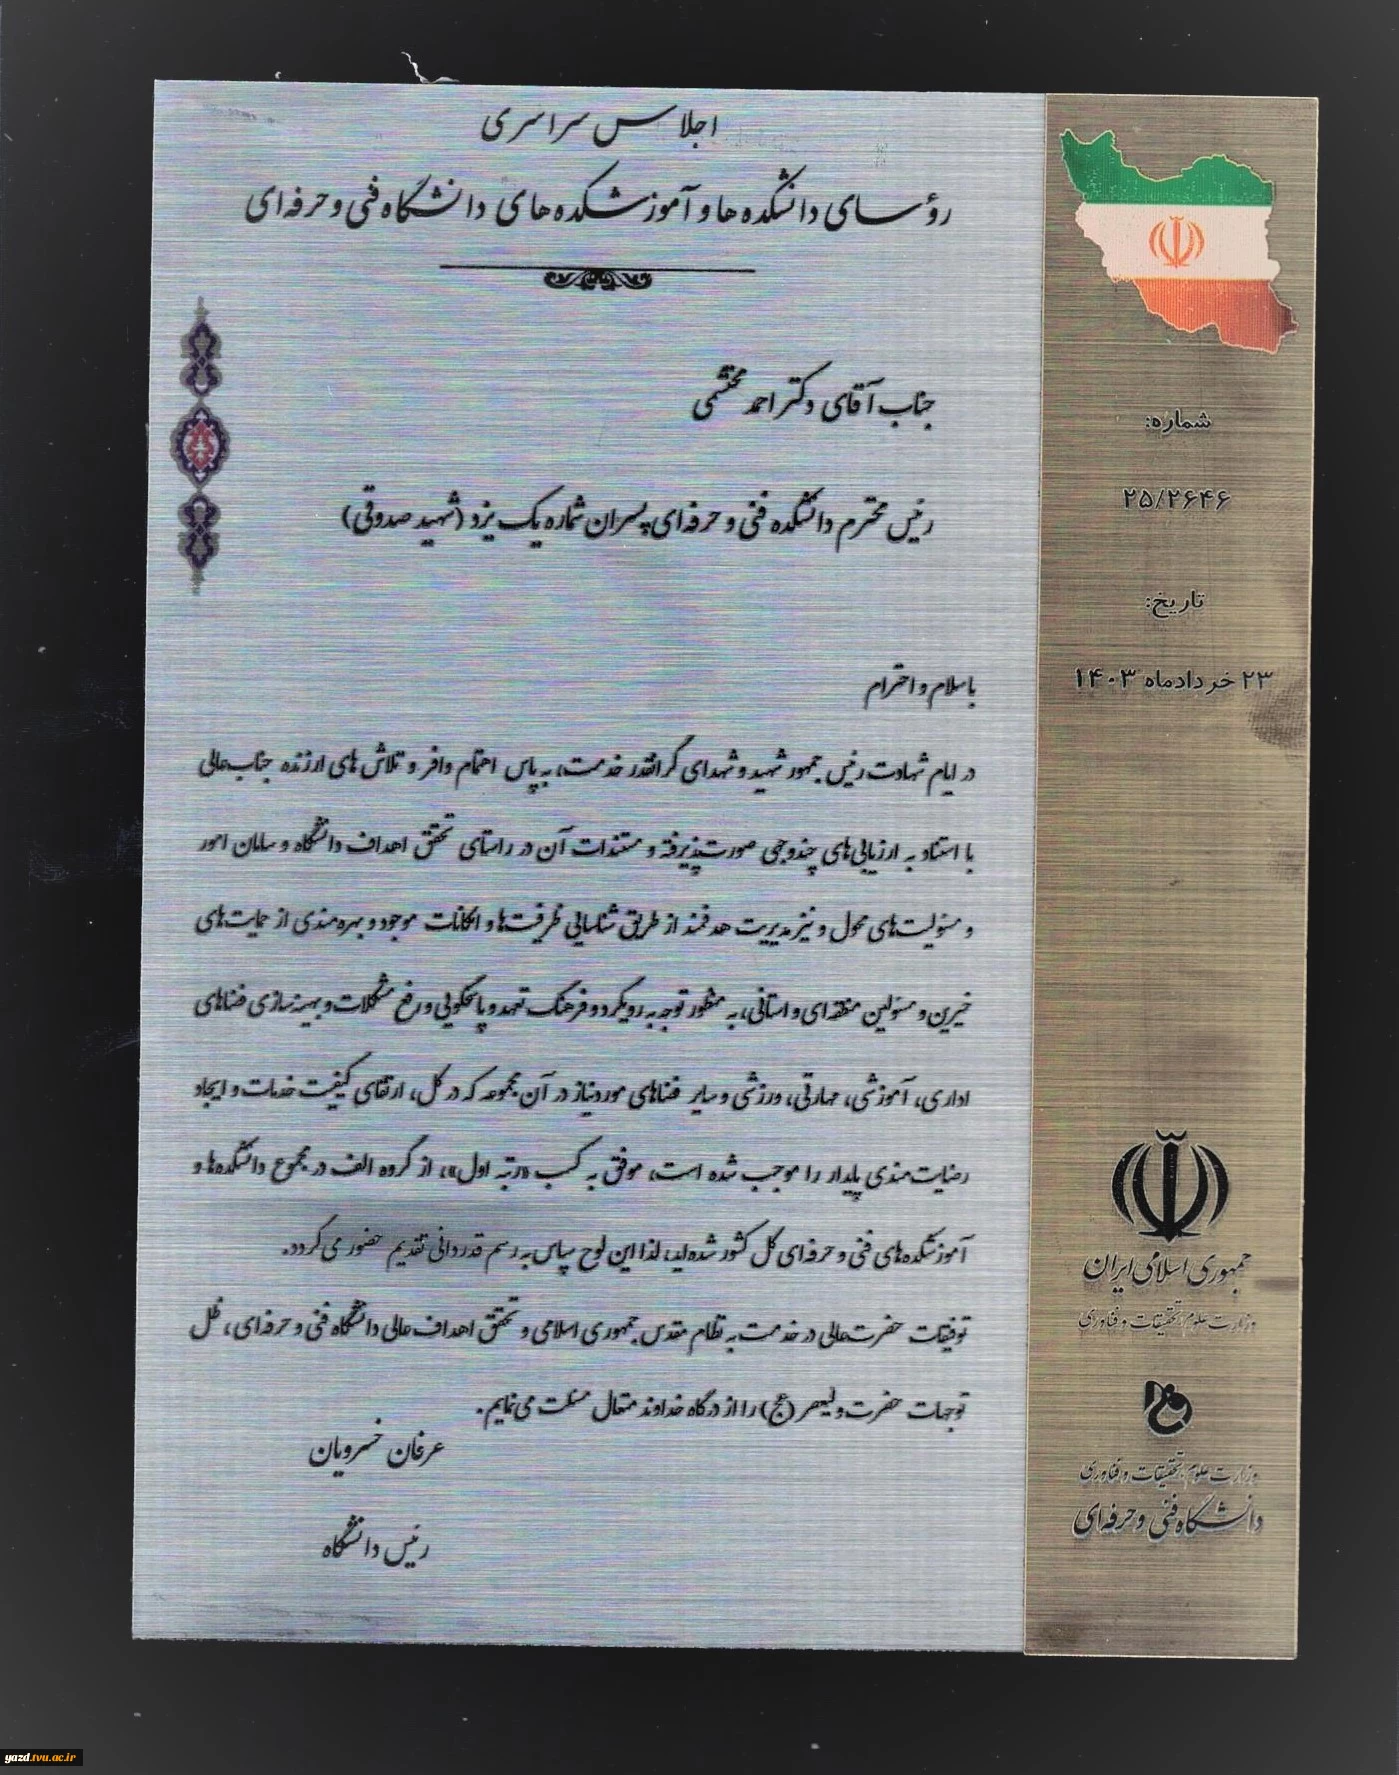 اجلاس سراسری
رؤسای دانشکده ها و آموزشکده های دانشگاه فنی و حرفه ای
جناب آقای دکتر احمد محتشمی
رئیس محترم دانشکده فنی و حرفه ای پسران شماره یک یزد (شهید صدوقی)
با سلام و احترام
در ایام شهادت رئیس جمهور شهید و شهدای گرانقدر خدمت، به پاس اهتمام وافر و تلاش های ارزنده جناب عالی
با استناد به ارزیابی های چندوجهی صورت پذیرفته و مستندات آن در راستای تحقق اهداف دانشگاه و سامان امور
و مسئولیت های محول و نیز مدیریت هدفمند از طریق شناسایی ظرفیت ها و امکانات موجود و بهره مندی از حمایت های
خیرین و مسئولین منطقه ای و استانی، به منظور توجه به رویکرد و فرهنگ تعهد و پاسخگویی و رفع مشکلات و بهینه سازی فضاهای
اداری، آموزشی، مهارتی، ورزشی و سایر فضاهای مورد نیاز در آن مجموعه که در کل، ارتقای کیفیت خدمات و ایجاد
رضایت مندی پایدار را موجب شده است، موفق به کسب «رتبه اول»، از گروه الف در مجموع دانشکده ها و
آموزشکده های فنی و حرفه ای کل کشور شده اید، لذا این لوح سپاس به رسم قدردانی تقدیم حضور می گردد.
توفیقات حضرت عالی در خدمت به نظام مقدس جمهوری اسلامی و تحقق اهداف عالی دانشگاه فنی و حرفه ای، ظل
توجهات حضرت ولیعصر (عج) را از درگاه خداوند متعال مسئلت می نمایم.
عرفان خسرویان
رئیس دانشگاه
شماره:
۲۵/۲۶۴۶
تاریخ:
۲۳ خردادماه ۱۴۰۳
جمهوری اسلامی ایران
وزارت علوم، تحقیقات و فناوری
وزارت علوم، تحقیقات و فناوری
دانشگاه فنی و حرفه ای
yazd.tvu.ac.ir